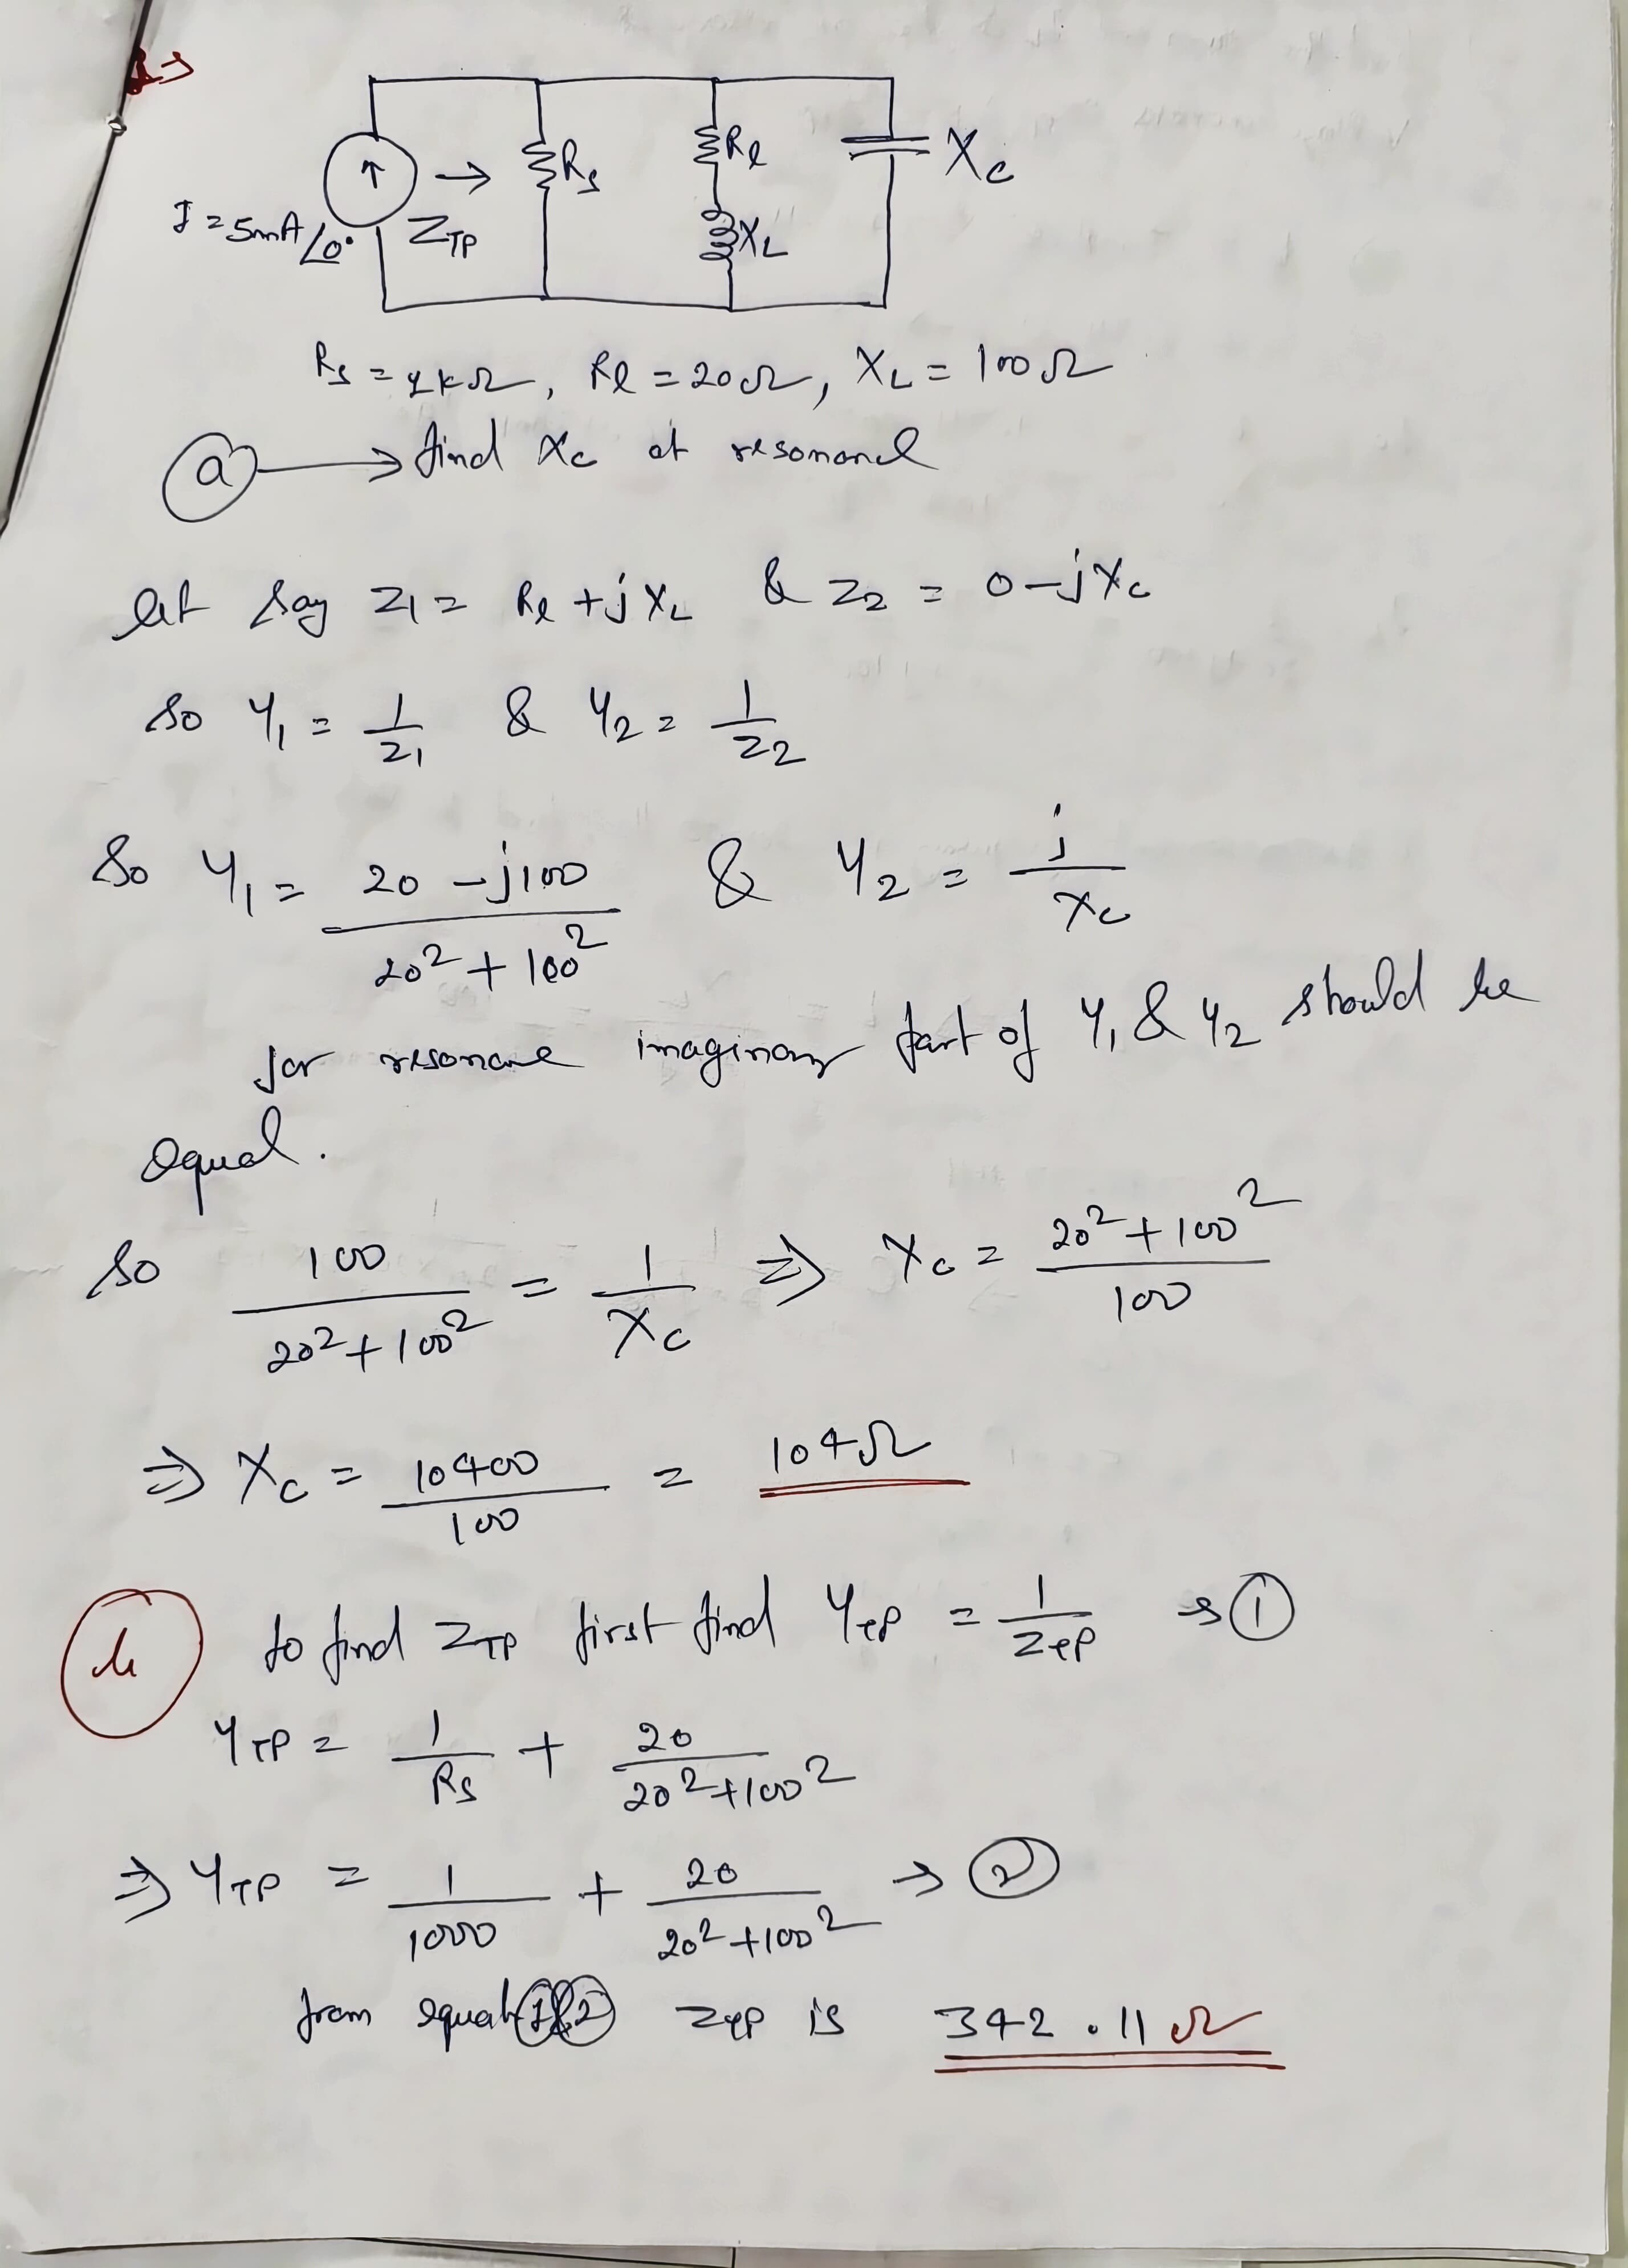 I = 5mA ∠0°
Z_TP
R_s
R_l
X_L
X_C
R_s = 1kΩ, R_l = 20Ω, X_L = 100Ω
a → find X_C at resonance
let say Z_1 = R_l + jX_L & Z_2 = 0 - jX_C
so Y_1 = 1/Z_1 & Y_2 = 1/Z_2
So Y_1 = (20 - j100)/(20² + 100²) & Y_2 = j/X_C
for resonance imaginary part of Y_1 & Y_2 should be
equal.
So 100/(20² + 100²) = 1/X_C ⇒ X_C = (20² + 100²)/100
⇒ X_C = 10400/100 = 104Ω
b to find Z_TP first find Y_TP = 1/Z_TP → ①
Y_TP = 1/R_s + 20/(20² + 100²)
⇒ Y_TP = 1/1000 + 20/(20² + 100²) → ②
from equat ①&② Z_TP is 342.11Ω